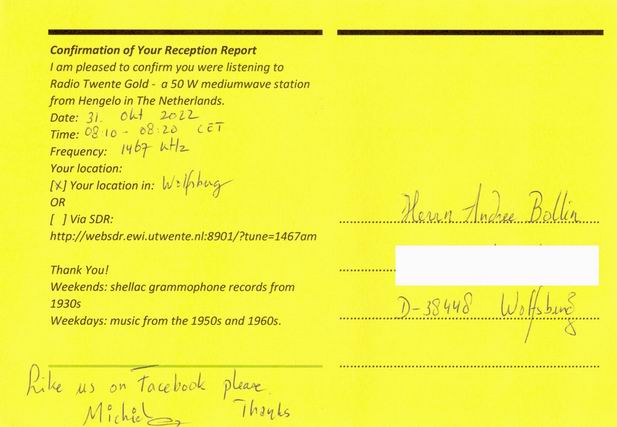 Confirmation of Your Reception Report
I am pleased to confirm you were listening to
Radio Twente Gold - a 50 W mediumwave station
from Hengelo in The Netherlands.
Date: 31. Okt 2022
Time: 08:10 - 08:20 CET
Frequency: 1467 kHz
Your location:
[X] Your location in: Wolfsburg
OR
[ ] Via SDR:
http://websdr.ewi.utwente.nl:8901/?tune=1467am
Thank You!
Weekends: shellac grammophone records from
1930s
Weekdays: music from the 1950s and 1960s.
Like us on Facebook please
Michiel Thanks
Herrn Andree Bollin
D-38448 Wolfsburg